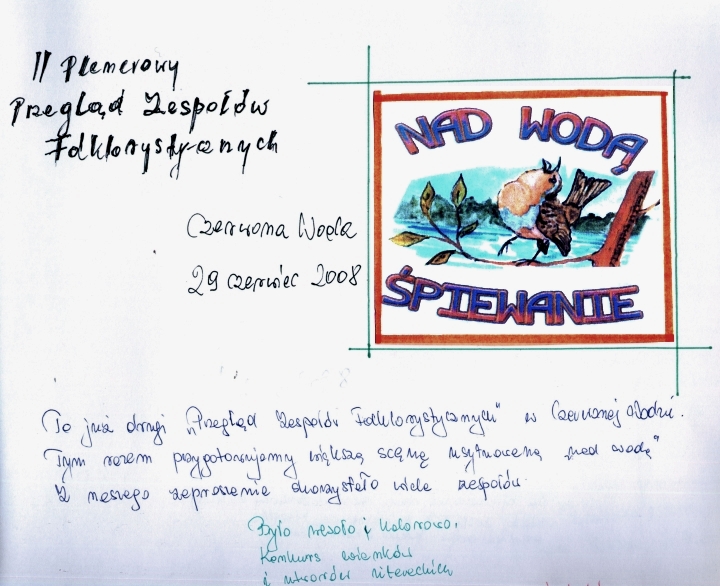 II Plenerowy
Przegląd Zespołów
Folklorystycznych
NAD WODĄ
ŚPIEWANIE
Czerwona Woda
29 czerwiec 2008
To już drugi „Przegląd Zespołów Folklorystycznych" w Czerwonej Wodzie.
Tym razem przygotowujemy większą scenę usytuowaną „nad wodą"
Z naszego zaproszenia skorzystało wiele zespołów.
Było wesoło i kolorowo.
Konkurs wianków
i utworów literackich